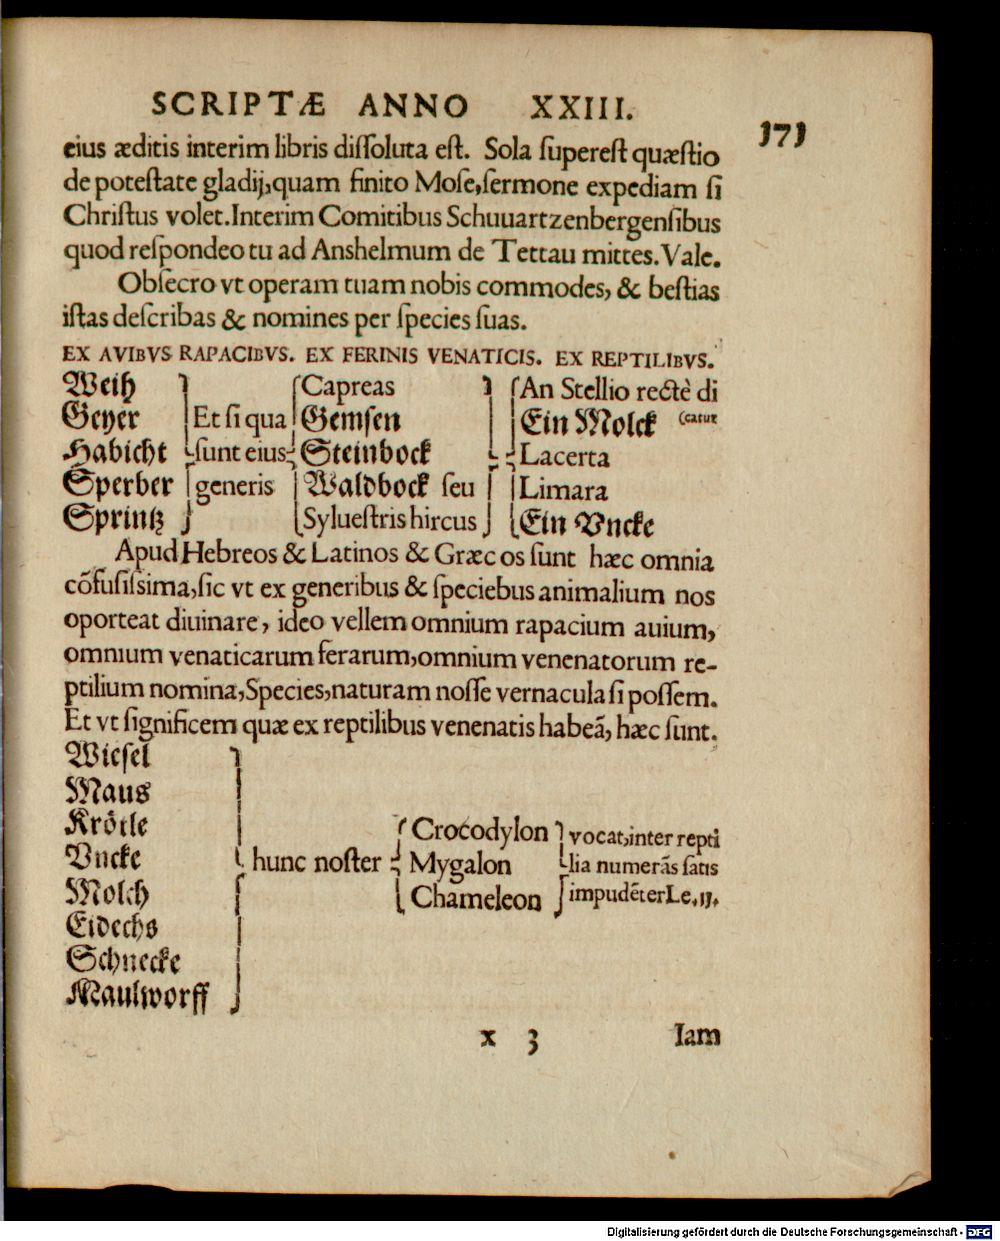 SCRIPTÆ ANNO XXIII.
171
eius æditis interim libris dissoluta est. Sola superest quæstio
de potestate gladij, quam finito Mose, sermone expediam si
Christus volet. Interim Comitibus Schuuartzenbergensibus
quod respondeo tu ad Anshelmum de Tettau mittes. Vale.
Obsecro vt operam tuam nobis commodes, & bestias
istas describas & nomines per species suas.
EX AVIBVS RAPACIBVS. EX FERINIS VENATICIS. EX REPTILIBVS.
Weih Capreas An Stellio rectè di
Geyer Et si qua Gemsen Ein Molck (catur
Habicht sunt eius Steinbock Lacerta
Sperber generis Waldbock seu Limara
Sprintz Syluestris hircus Ein Vncke
Apud Hebreos & Latinos & Græcos sunt hæc omnia
cõfusissima, sic vt ex generibus & speciebus animalium nos
oporteat diuinare, ideo vellem omnium rapacium auium,
omnium venaticarum ferarum, omnium venenatorum re-
ptilium nomina, Species, naturam nosse vernacula si possem.
Et vt significem quæ ex reptilibus venenatis habeã, hæc sunt.
Wiesel
Maus
Krötle Crocodylon vocat, inter repti
Vncke hunc noster Mygalon lia numerãs satis
Molch Chameleon impudẽter Le. 11.
Eidechs
Schnecke
Maulworff
x 3 Iam
Digitalisierung gefördert durch die Deutsche Forschungsgemeinschaft - DFG